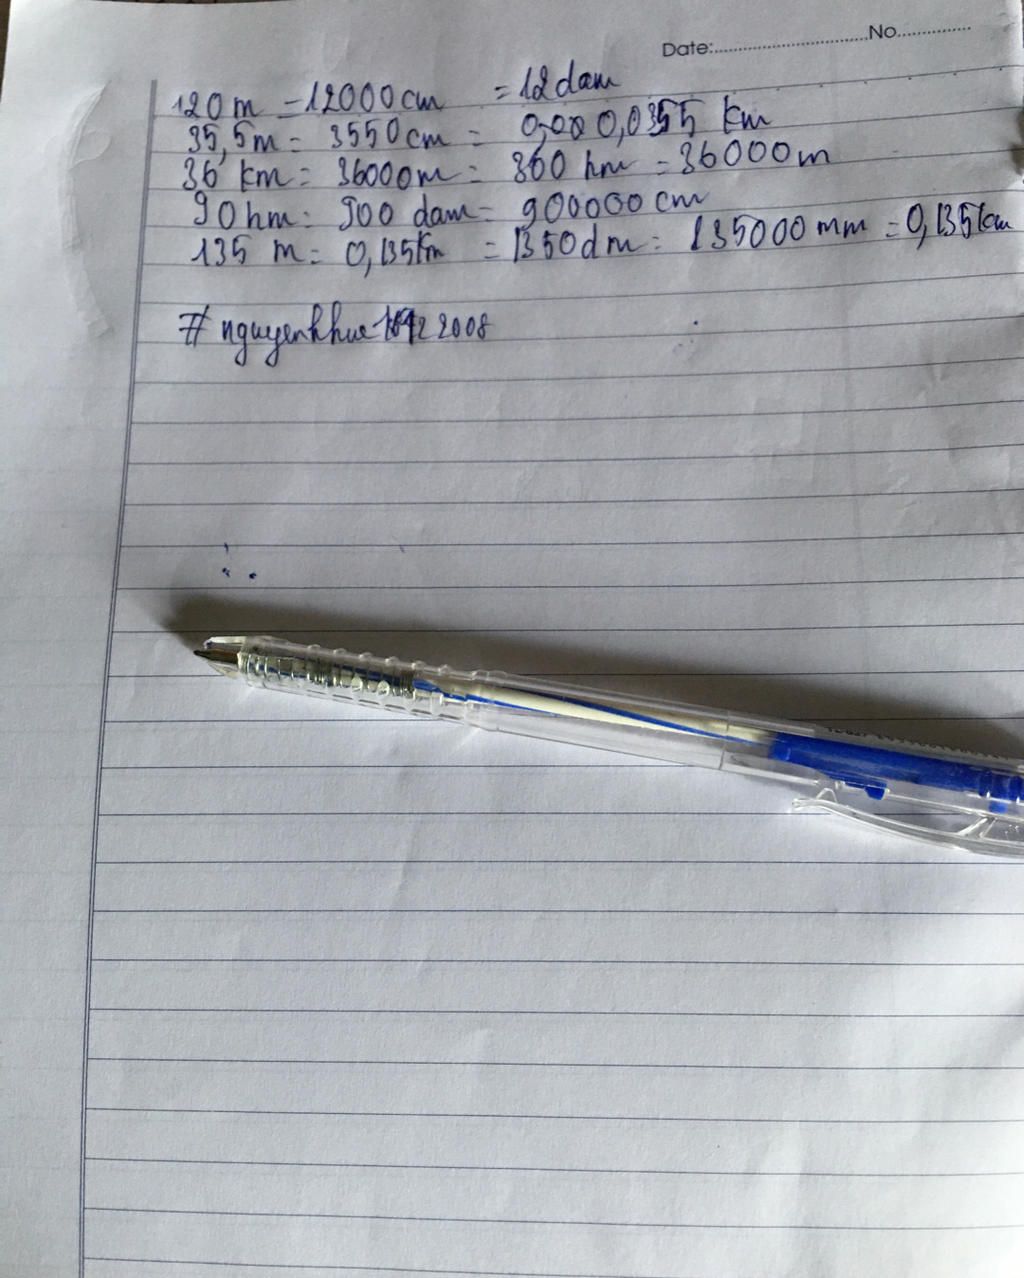 Date:..............................No...............
120 m = 12000 cm = 12 dam
35,5m = 3550 cm = 0,0355 km
36 km = 36000m = 360 hm = 36000 m
90 hm = 900 dam = 900000 cm
135 m = 0,135km = 1350 dm = 135000 mm = 0,135km